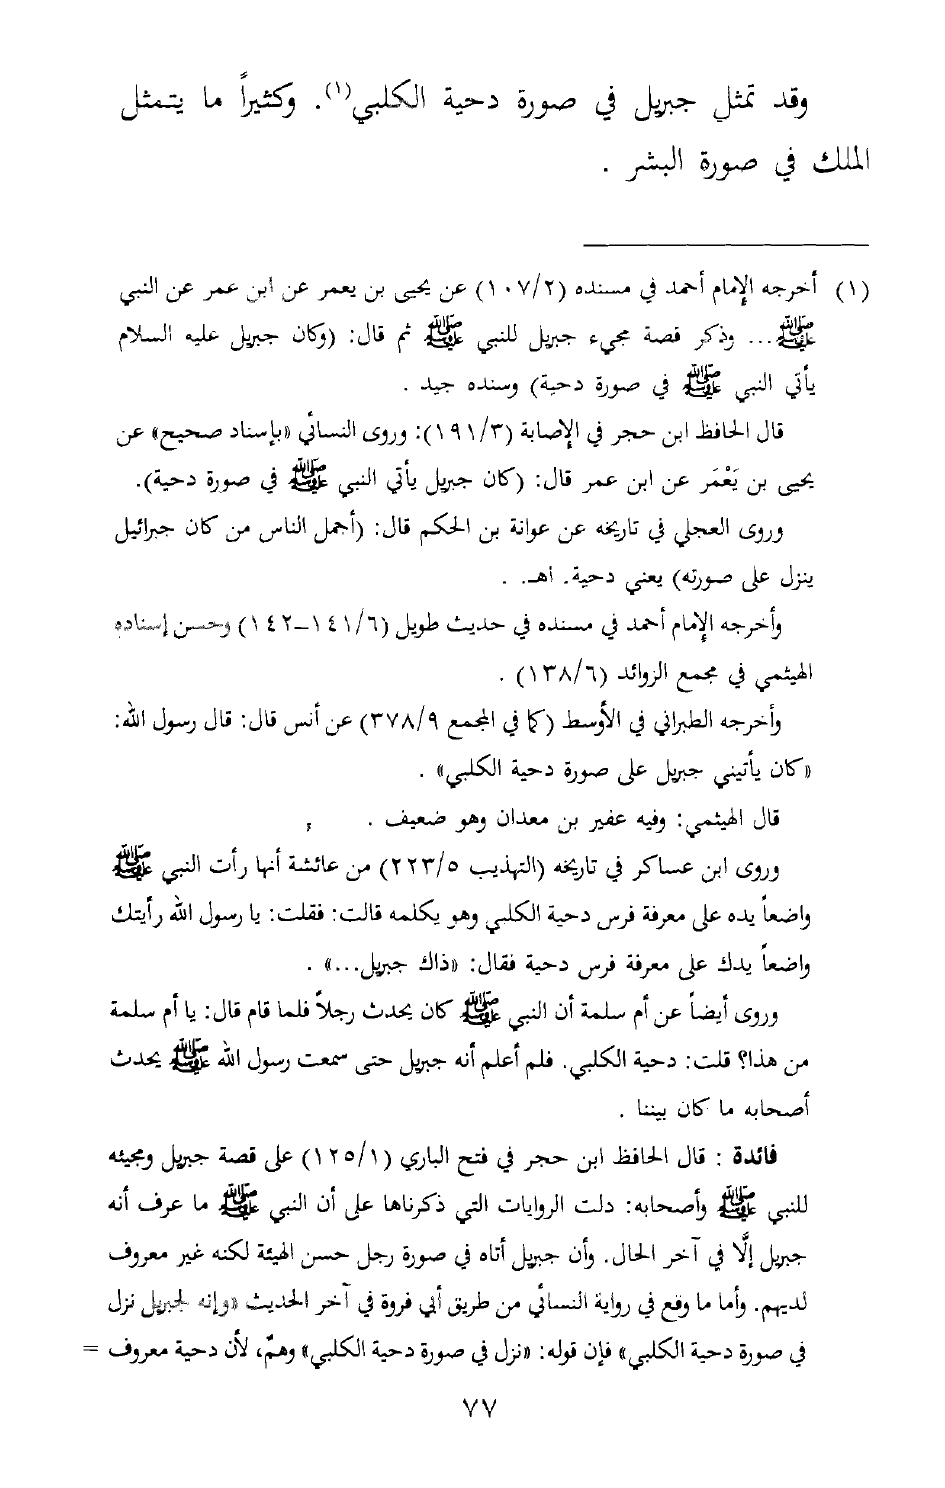 وقد تمثل جبريل في صورة دحية الكلبي(١). وكثيراً ما يتمثل
الملك في صورة البشر .
(١) أخرجه الإمام أحمد في مسنده (١٠٧/٢) عن يحيى بن يعمر عن ابن عمر عن النبي
ﷺ... وذكر قصة مجيء جبريل للنبي ﷺ ثم قال: (وكان جبريل عليه السلام
يأتي النبي ﷺ في صورة دحية) وسنده جيد .
قال الحافظ ابن حجر في الإصابة (١٩١/٣): وروى النسائي «بإسناد صحيح» عن
يحيى بن يَعْمَر عن ابن عمر قال: (كان جبريل يأتي النبي ﷺ في صورة دحية).
وروى العجلي في تاريخه عن عوانة بن الحكم قال: (أجمل الناس من كان جبرائيل
ينزل على صورته) يعني دحية. اهـ. .
وأخرجه الإمام أحمد في مسنده في حديث طويل (١٤١/٦–١٤٢) وحسن إسناده
الهيثمي في مجمع الزوائد (١٣٨/٦) .
وأخرجه الطبراني في الأوسط (كما في المجمع ٣٧٨/٩) عن أنس قال: قال رسول الله:
«كان يأتيني جبريل على صورة دحية الكلبي» .
قال الهيثمي: وفيه عفير بن معدان وهو ضعيف .
وروى ابن عساكر في تاريخه (التهذيب ٢٢٣/٥) من عائشة أنها رأت النبي ﷺ
واضعاً يده على معرفة فرس دحية الكلبي وهو يكلمه قالت: فقلت: يا رسول الله رأيتك
واضعاً يدك على معرفة فرس دحية فقال: «ذاك جبريل...» .
وروى أيضاً عن أم سلمة أن النبي ﷺ كان يحدث رجلاً فلما قام قال: يا أم سلمة
من هذا؟ قلت: دحية الكلبي. فلم أعلم أنه جبريل حتى سمعت رسول الله ﷺ يحدث
أصحابه ما كان بيننا .
فائدة : قال الحافظ ابن حجر في فتح الباري (١٢٥/١) على قصة جبريل ومجيئه
للنبي ﷺ وأصحابه: دلت الروايات التي ذكرناها على أن النبي ﷺ ما عرف أنه
جبريل إلَّا في آخر الحال. وأن جبريل أتاه في صورة رجل حسن الهيئة لكنه غير معروف
لديهم. وأما ما وقع في رواية النسائي من طريق أبي فروة في آخر الحديث «وإنه لجبريل نزل
في صورة دحية الكلبي» فإن قوله: «نزل في صورة دحية الكلبي» وهمٌ، لأن دحية معروف =
٧٧